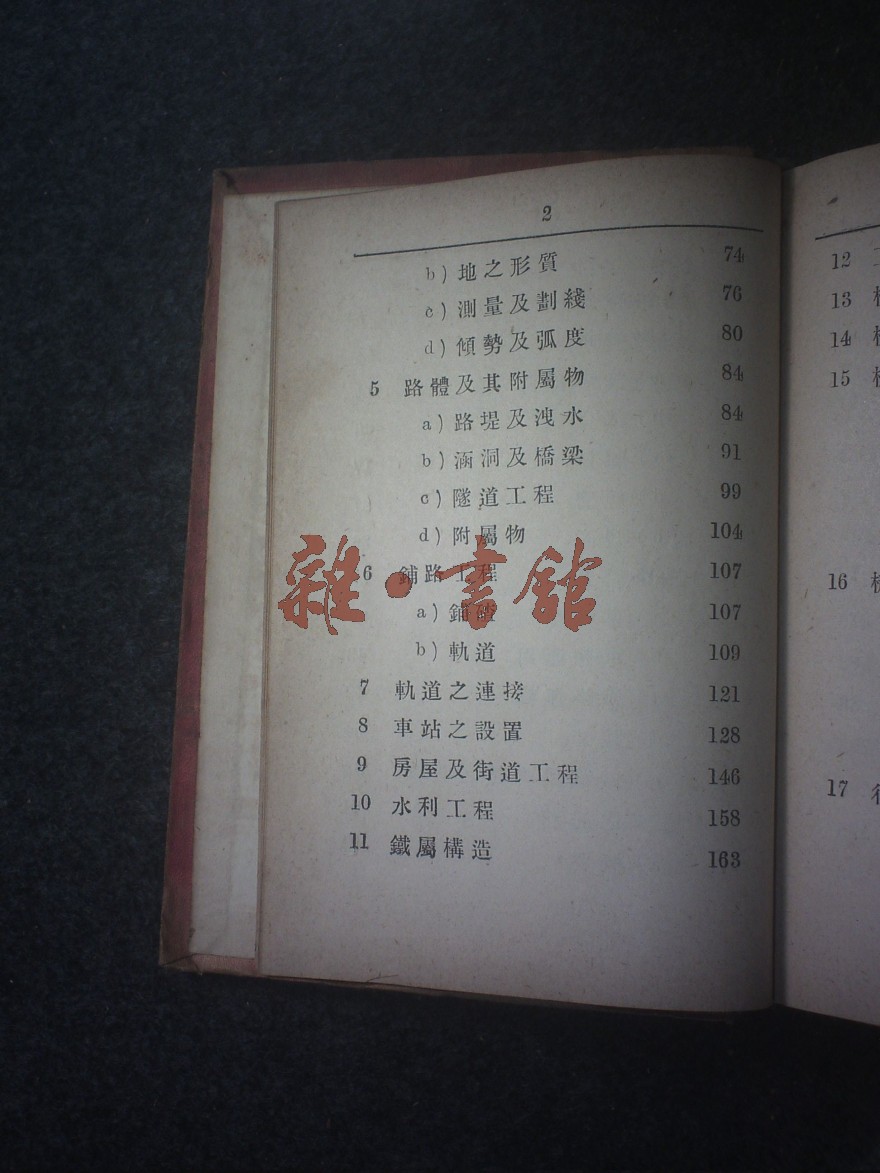 2
b) 地之形質 74
c) 測量及劃綫 76
d) 傾勢及弧度 80
5 路體及其附屬物 84
a) 路堤及洩水 84
b) 涵洞及橋梁 91
c) 隧道工程 99
d) 附屬物 104
6 鋪路工程 107
a) 鋪碴 107
b) 軌道 109
7 軌道之連接 121
8 車站之設置 128
9 房屋及街道工程 146
10 水利工程 158
11 鐵屬構造 163
雜·書館
12
13
14
15
16
17